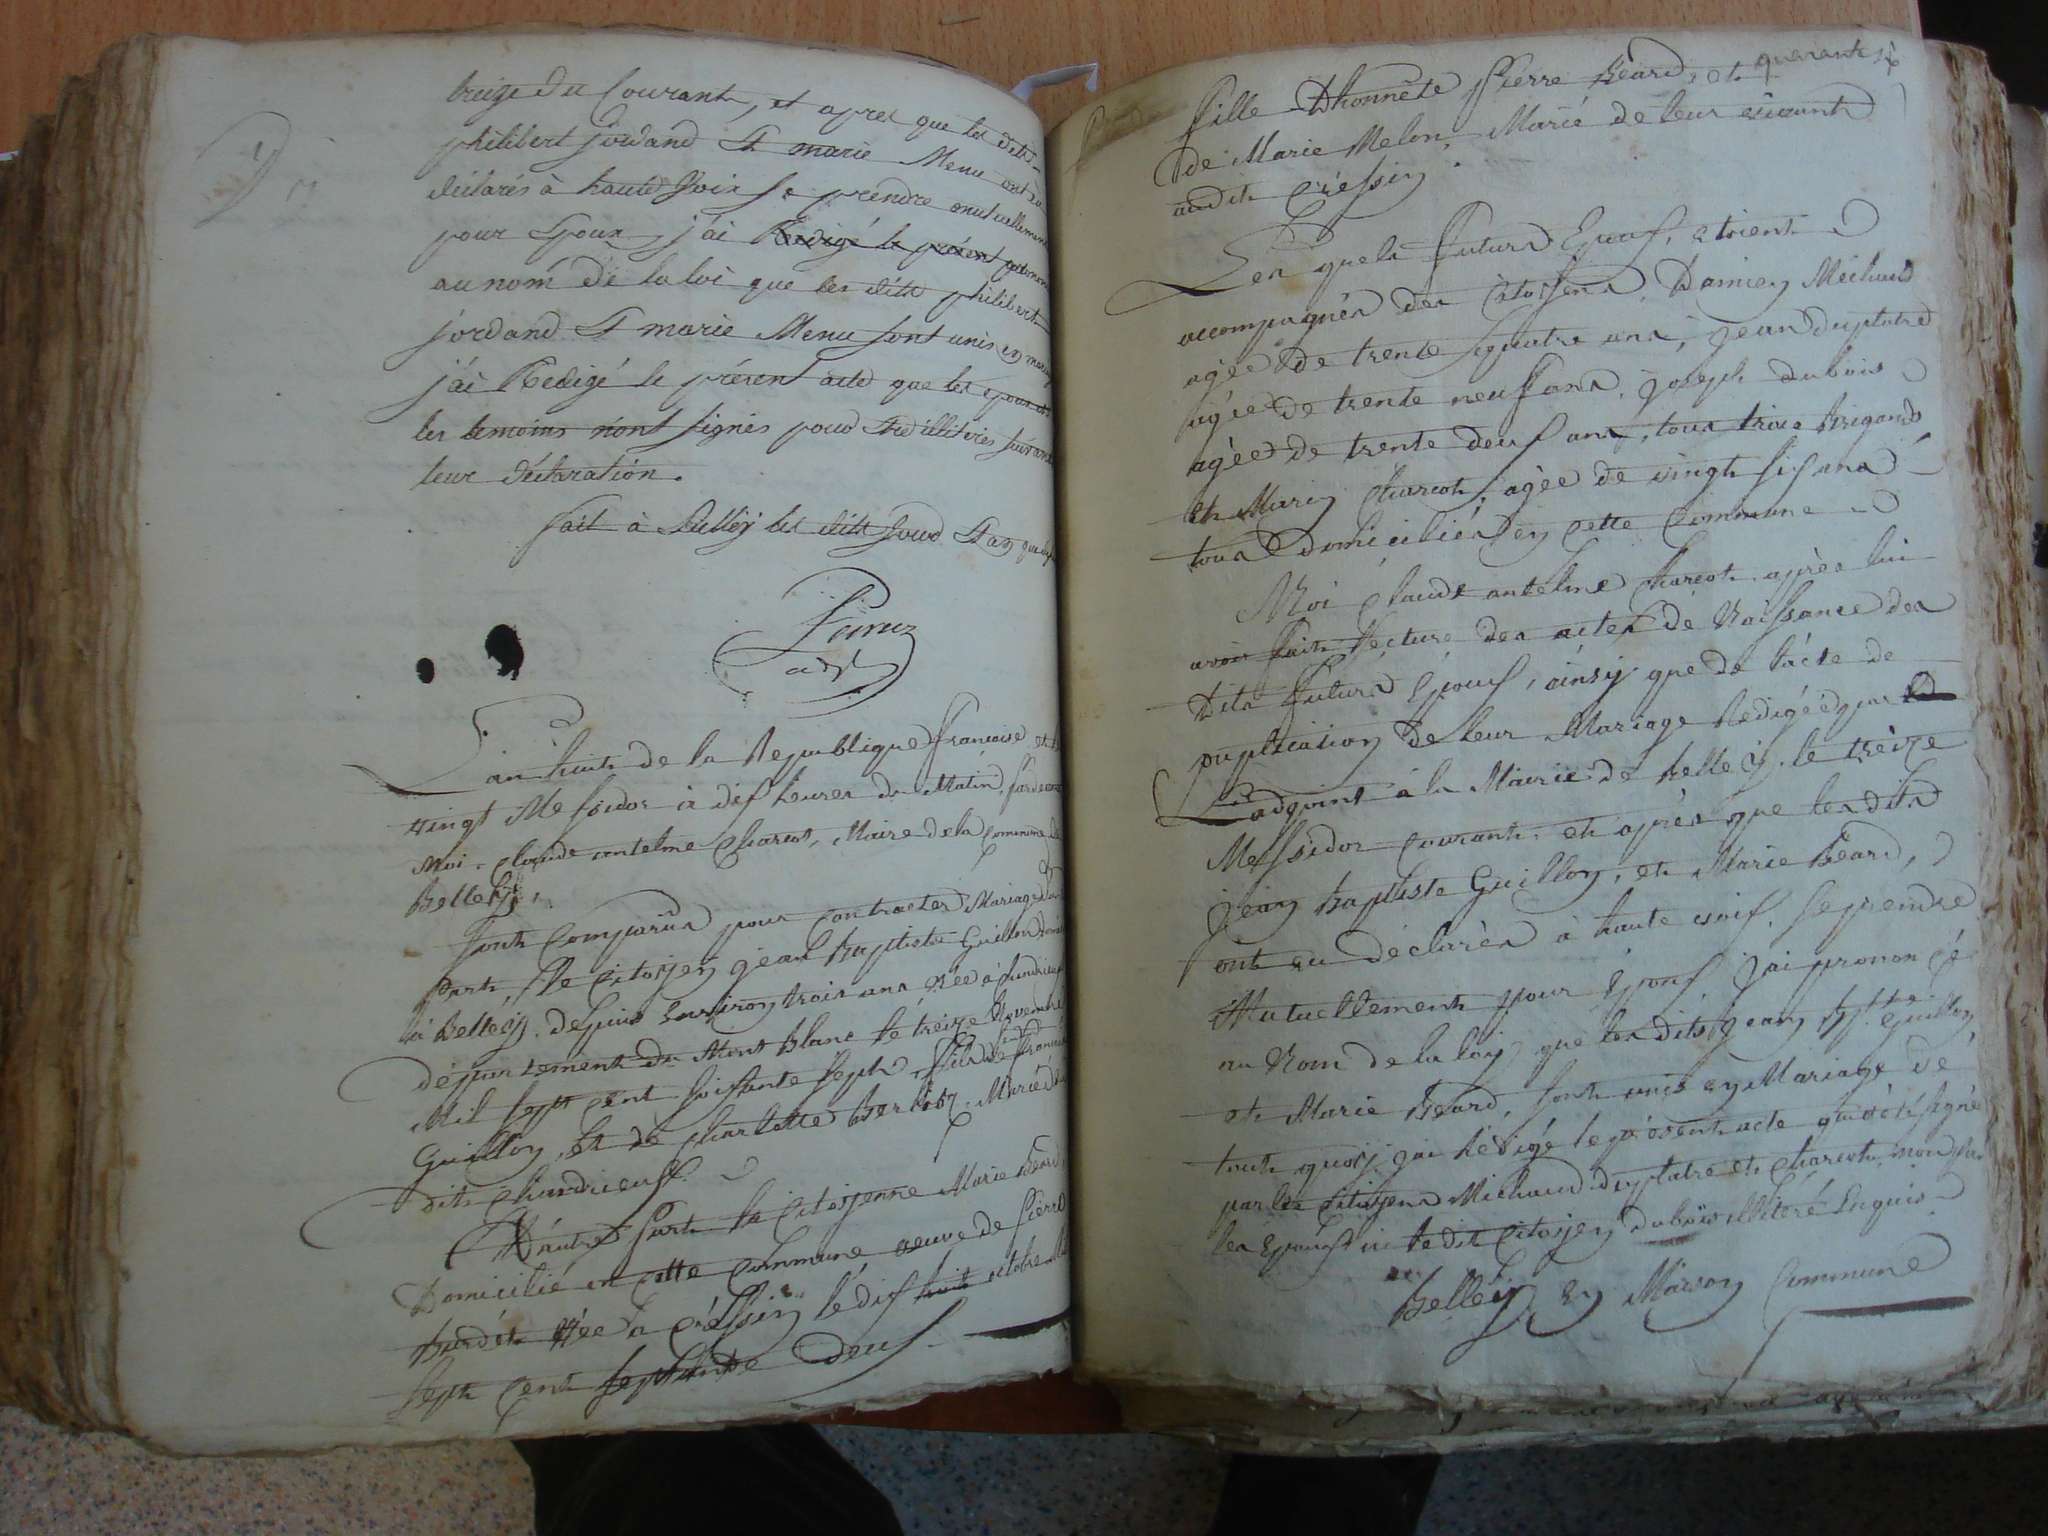 treize du Courant, et apres que les dits
philibert jordand Et marie Menu ont
déclarés à haute Voix se prendre mutuellement
pour Epoux, j'ai Redigé le présent
au nom de la loi que les dits philibert
jordand Et marie Menu sont unis en mariage
j'ai Redigé le présent acte que les epoux et
les temoins n'ont signés pour illitires suivant
leur déclaration.
fait à Belleÿ les dits jour Et an que
adjt
L'an huit de la Republique francaise et le
vingt Messidor à dix heures du Matin, pardevant
Moi Claude antelme Charcot, Maire de la Commune de
Belleÿ,
sont Comparus pour Contracter Mariage d'une
part, le Citoyen jean Baptiste Guillon domicilié
à Belleÿ depuis Environ trois ans née à Chindrieux
département du Mont Blanc le treize Novembre
Mil sept cent soixante sept, fils de francois
Guillon, Et de Charlotte Berlioz Marié
dit Chindrieux
D'autre Part la Citoyenne Marie Béard
Domicilié en cette Commune, veuve de Pierre
Burdet née à Créssin le dix huit octobre Mil
sept cent septante deux
quarante six
fille D'honnête Pierre Béard, et
de Marie Melon, Marié de leur vivant
audit Créssin
Les quels futurs Epoux, etoient
accompagnés des Citoyens, Damien Michaud
agée de trente quatre ans, jean duplatre
agée de trente neuf ans, joseph dubois
agée de trente deux ans, tous trois
et Marin Charcot, agée de vingt six ans
tous domiciliés en cette Commune
Moi Claude antelme Charcot après lui
avoir fait lecture des actes de Naissance des
dits futurs Epoux, ainsy que de l'acte de
puplication de leur Mariage Redigée par
L'adjoint à la Mairie de Belleÿ, le trèize
Messidor Courant, et après que les dits
jean Baptiste Guillon, et Marie Béard,
ont eu déclarés à haute voix, se prendre
Mutuellement pour Epoux j'ai prononcé
au Nom de la loy que les dits jean Bptte Guillon
et Marie Béard, sont unis en Mariage de
tout quoy j'ai Rédigé le présent acte qui a été signé
par les Citoyens Michaud duplatre et Charcot, non par
les Epoux ni le dit Citoyen dubois illiteré Enquis
Belleÿ En Maison Commune